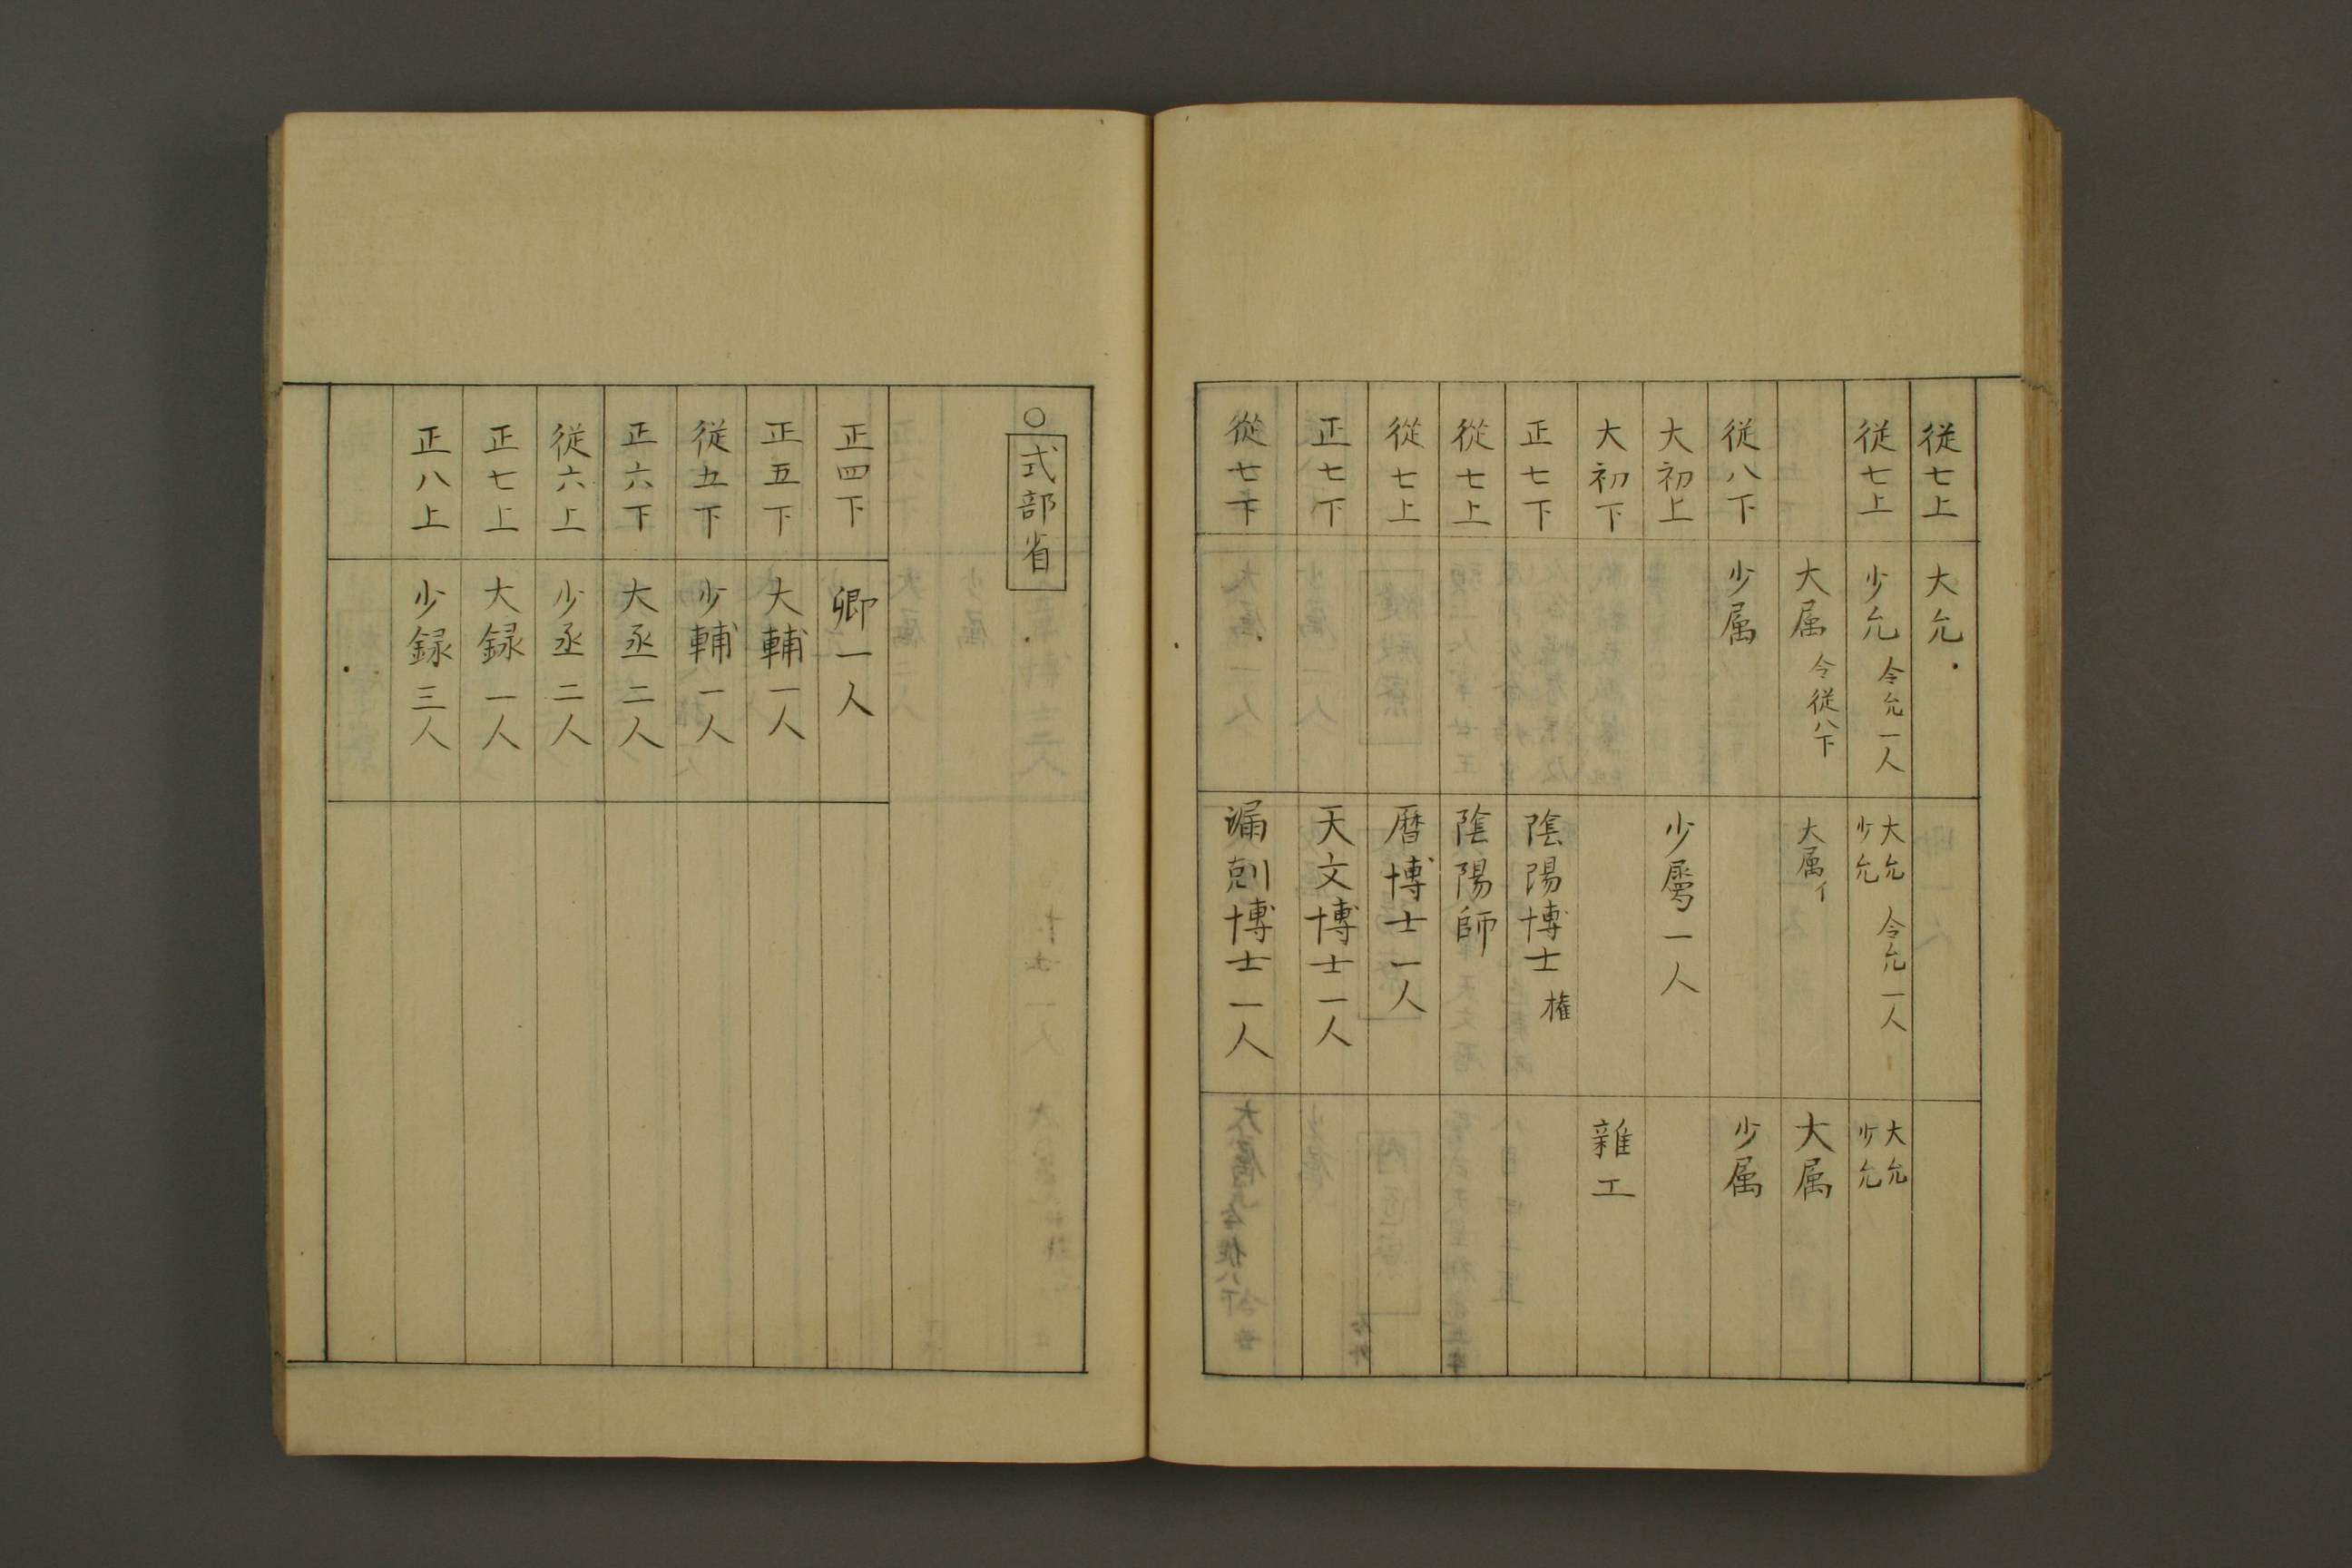 従七上 大允
従七上 少允 令允一人 大允 少允 令允一人 大允 少允
大属 令従八下 大属イ 大属
従八下 少属 少属
大初上 少属一人
大初下 雜工
正七下 陰陽博士 権
從七上 陰陽師
從七上 暦博士一人
正七下 天文博士一人
從七下 漏剋博士一人
○式部省
正四下 卿一人
正五下 大輔一人
従五下 少輔一人
正六下 大丞二人
従六上 少丞二人
正七上 大録一人
正八上 少録三人